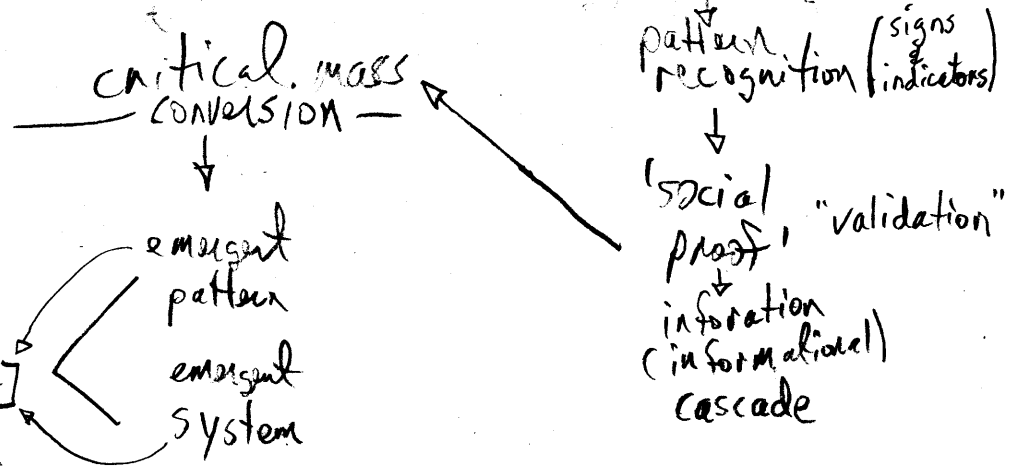 critical mass
conversion
emergent
pattern
emergent
system
pattern
recognition (signs & indicators)
'social
proof' "validation"
inforation
(informational)
cascade